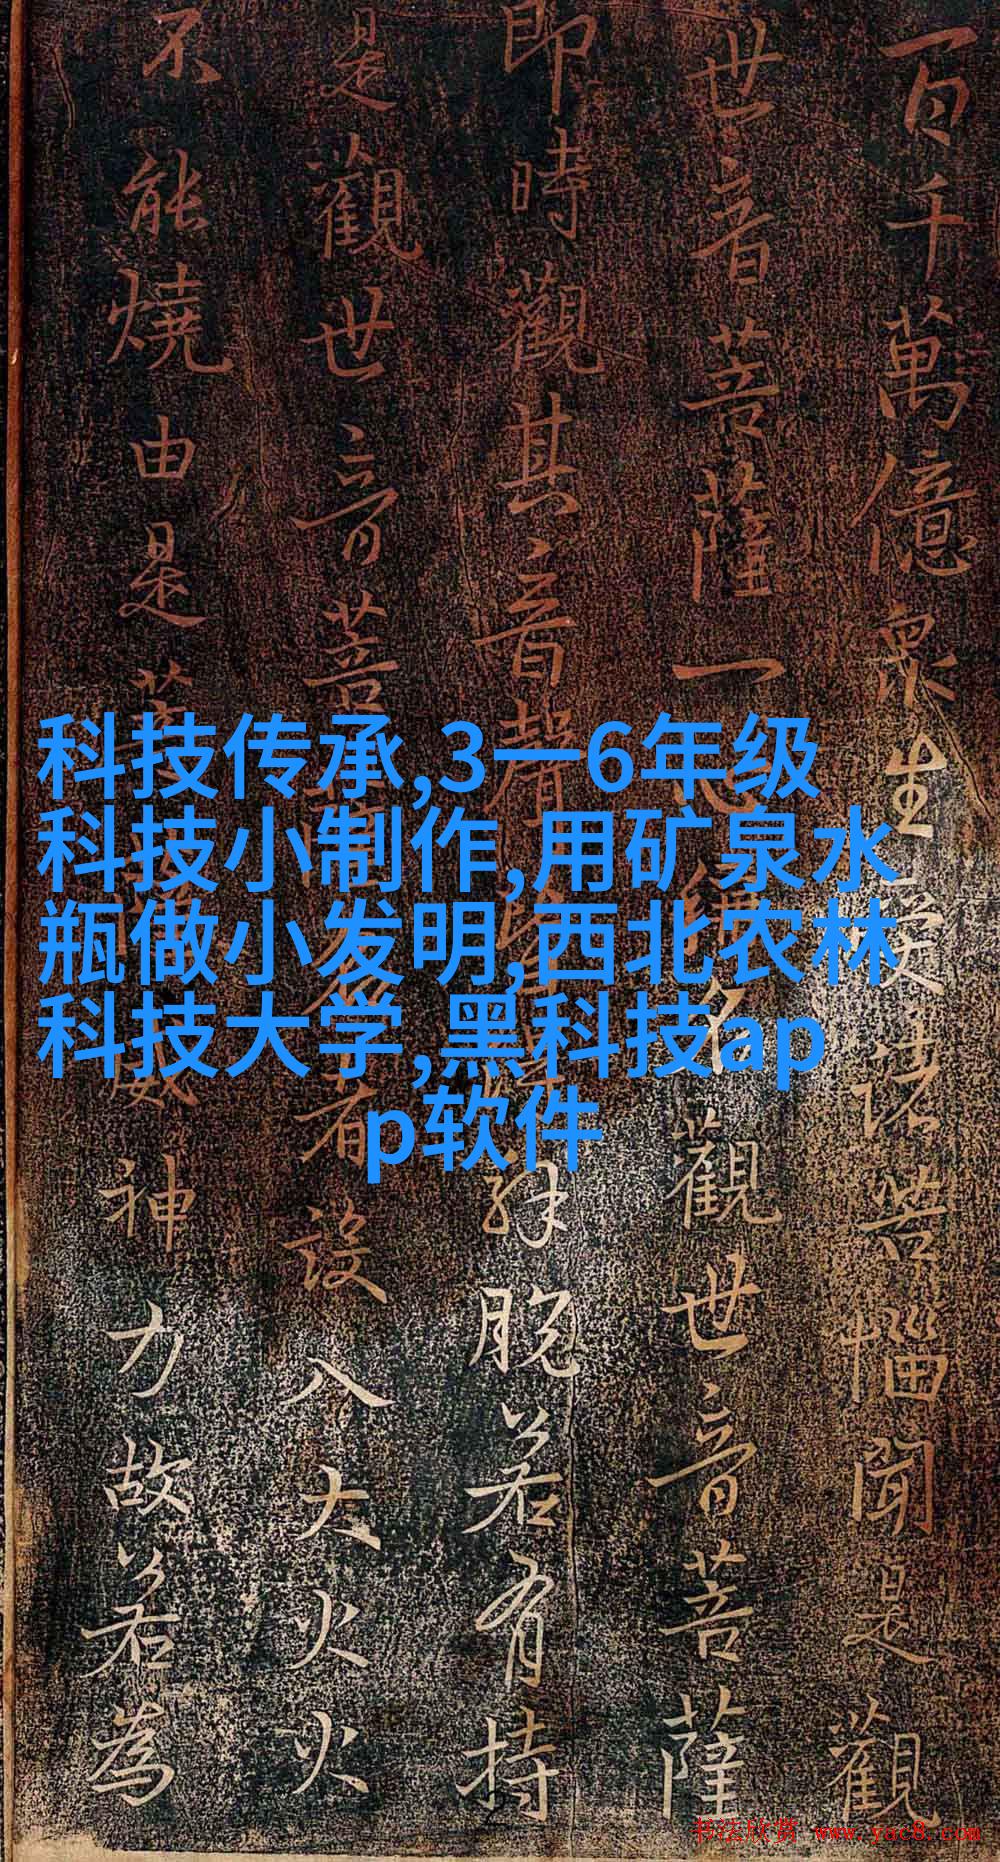 百千萬億眾生受諸苦惱聞是觀
世音菩薩一心稱名觀世音菩薩
即時觀其音聲皆得解脫若有持
是觀世音菩薩名者設入大火火
不能燒由是菩薩威神力故若為
科技传承,3一6年级
科技小制作,用矿泉水
瓶做小发明,西北农林
科技大学,黑科技ap
p软件
书法欣赏 www.yac8.com